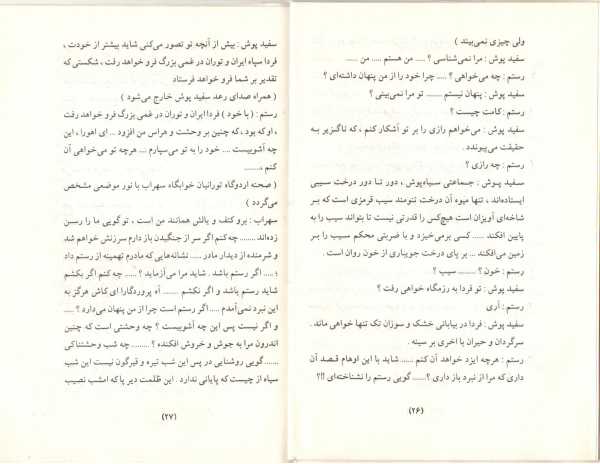 ولی چیزی نمی‌بیند )
سفید پوش : مرا نمی‌شناسی ؟ .... من هستم .... من .....
رستم : چه می‌خواهی ؟ .... چرا خود را از من پنهان داشته‌ای ؟
سفید پوش : پنهان نیستم ........ تو مرا نمی‌بینی ؟
رستم : کامت چیست ؟
سفید پوش : می‌خواهم رازی را بر تو آشکار کنم ، که ناگزیر به
حقیقت می‌پیوندد .
رستم : چه رازی ؟
سفید پوش : جماعتی سیاه‌پوش ، دور تا دور درخت سیبی
ایستاده‌اند ، تنها میوه آن درخت تنومند سیب قرمزی است که بر
شاخه‌ای آویزان است هیچ‌کس را قدرتی نیست تا بتواند سیب را به
پایین افکند ..... کسی برمی‌خیزد و با ضربتی محکم سیب را بر
زمین می‌افکند ... بر پای درخت جویباری از خون روان است .
رستم : خون ؟ ......... سیب ؟
سفید پوش : تو فردا به رزمگاه خواهی رفت ؟
رستم : آری
سفید پوش : فردا در بیابانی خشک و سوزان تک تنها خواهی ماند .
سرگردان و حیران با اخری بر سینه .
رستم : هرچه ایزد خواهد آن کنم ....... شاید با این اوهام قصد آن
داری که مرا از نبرد باز داری ؟ ..... گویی رستم را نشناخته‌ای !!؟
(۲۶)
سفید پوش : بیش از آنچه تو تصور می‌کنی شاید بیشتر از خودت ،
فردا سپاه ایران و توران در غمی بزرگ فرو خواهد رفت ، شکستی که
تقدیر بر شما فرو خواهد فرستاد
( همراه صدای رعد سفید پوش خارج می‌شود )
رستم : ( با خود ) فردا ایران و توران در غمی بزرگ فرو خواهد رفت
، او که بود ، که چنین بر وحشت و هراس من افزود ... ای اهورا ، این
چه آشوبیست .... خود را به تو می‌سپارم ... هرچه تو می‌خواهی آن
کنم ،......
( صحنه اردوگاه تورانیان خوابگاه سهراب با نور موضعی مشخص
می‌گردد )
سهراب : برو کتف و یالش همانند من است ، تو گویی ما را رسن
زده‌اند ........ چه کنم اگر سر از جنگیدن باز دارم سرزنش خواهم شد
و شرمنده از دیدار مادر ..... نشانه‌هایی که مادرم تهمینه از رستم داد
؛ .... اگر رستم باشد . شاید مرا می‌آزماید ؟ ..... چه کنم اگر بکشم
شاید رستم باشد و اگر نکشم ....... آه پروردگارا ای کاش هرگز به
این نبرد نمی‌آمدم .....اگر رستم است چرا از من پنهان می‌دارد ؟ ....
و اگر نیست پس این چه آشوبیست ؟ چه وحشتی است که چنین
اندرون مرا به جوش و خروش افکنده ؟ ........ چه شب وحشتناکی
.......گویی روشنایی در پس این شب تیره و قیرگون نیست این شب
سیاه از چیست که پایانی ندارد . این ظلمت دیر پا که امشب نصیب
(۲۷)